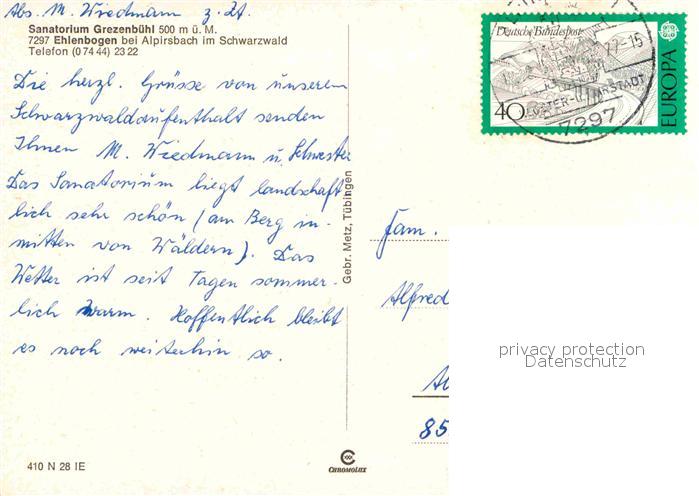 Abs. M. Wiedmann z. Zt.
Sanatorium Grezenbühl 500 m ü. M.
7297 Ehlenbogen bei Alpirsbach im Schwarzwald
Telefon (0 74 44) 23 22
Die herzl. Grüsse von unserem
Schwarzwaldaufenthalt senden
Ihnen M. Wiedmann u. Schwester
Das Sanatorium liegt landschaft
lich sehr schön (am Berg in-
mitten von Wäldern). Das
Wetter ist seit Tagen sommer-
lich warm. Hoffentlich bleibt
es noch weiterhin so.
410 N 28 IE
Gebr. Metz, Tübingen
CHROMOLUX
Deutsche Bundespost
40
EUROPA
77-15
KLOSTER-U.LUFTKURSTADT
7297
Fam.
Alfred
85
privacy protection
Datenschutz